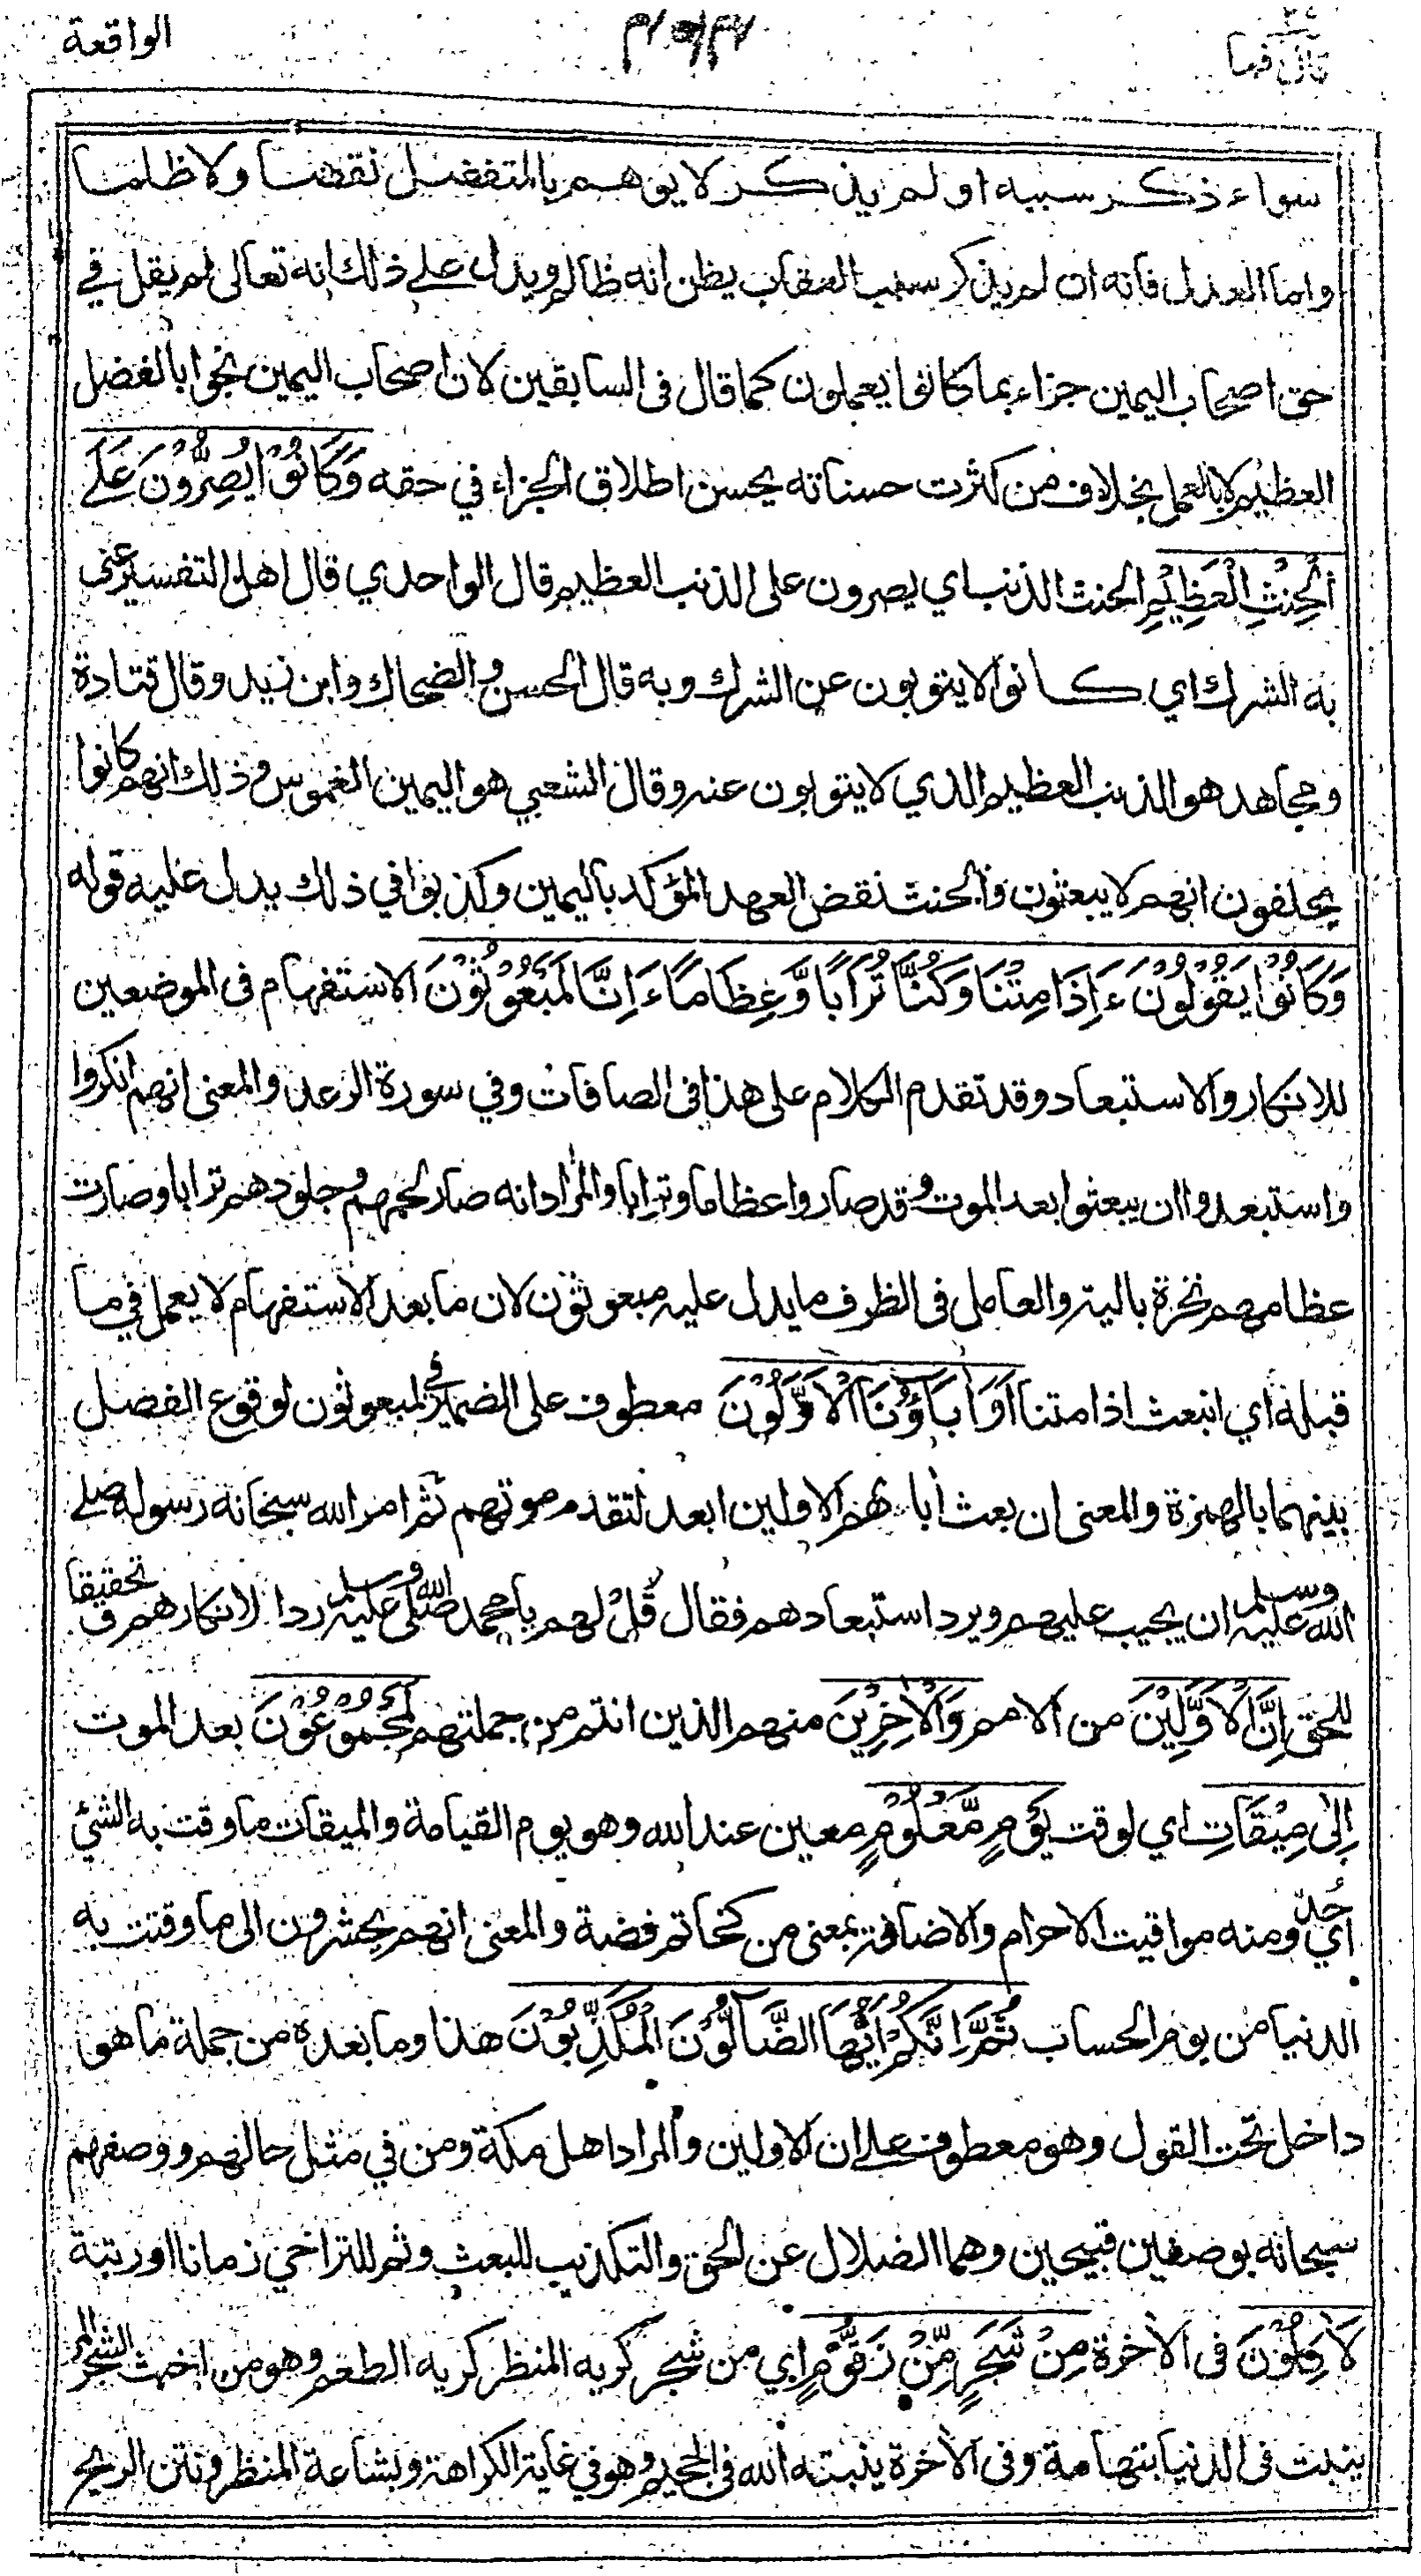 قال فما الواقعة
سواء ذكر سببه او لم يذكر لا يوهم بالمتفضل نقصا ولا ظلما
واما العدل فانه ان لم يذكر سبب العقاب يظن انه ظالم ويدل على ذلك انه تعالى لم يقل في
حق اصحاب اليمين جزاء بما كانوا يعملون كما قال فى السابقين لان اصحاب اليمين نجوا بالفضل
العظيم لا بالعمل بخلاف من كثرت حسناته يحسن اطلاق الجزاء في حقه وَكَانُوْا يُصِرُّوْنَ عَلَى
الْحِنْثِ الْعَظِيْمِ الحنث الذنب اي يصرون على الذنب العظيم قال الواحدي قال اهل التفسير عنى
به الشرك اي كانوا لا يتوبون عن الشرك وبه قال الحسن والضحاك وابن زيد وقال قتادة
ومجاهد هو الذنب العظيم الذي لا يتوبون عنه وقال الشعبي هو اليمين الغموس وذلك انهم كانوا
يحلفون انهم لا يبعثون والحنث نقض العهد المؤكد باليمين وكذبوا في ذلك يدل عليه قوله
وَكَانُوْا يَقُوْلُوْنَ ءَاِذَا مِتْنَا وَكُنَّا تُرَابًا وَّعِظَامًا ءَاِنَّا لَمَبْعُوْثُوْنَ الاستفهام فى الموضعين
للانكار والاستبعاد وقد تقدم الكلام على هذا فى الصافات وفي سورة الرعد والمعنى انهم انكروا
واستبعدوا ان يبعثوا بعد الموت وقد صاروا عظاما وترابا والمراد انه صار لحمهم وجلودهم ترابا وصارت
عظامهم نخرة بالية والعامل فى الظرف ما يدل عليه مبعوثون لان ما بعد الاستفهام لا يعمل في ما
قبله اي انبعث اذا متنا اَوَاٰبَاؤُنَا الْاَوَّلُوْنَ معطوف على الضمير في لمبعوثون لوقوع الفصل
بينهما بالهمزة والمعنى ان بعث آبائهم الاولين ابعد لتقدم موتهم ثم امر الله سبحانه رسوله صلى
الله عليه وسلم ان يجيب عليهم ويرد استبعادهم فقال قُلْ لهم يا محمد صلى الله عليه وسلم ردا لانكارهم وتحقيقا
للحق اِنَّ الْاَوَّلِيْنَ من الامم وَالْاٰخِرِيْنَ منهم الذين انتم من جملتهم لَمَجْمُوْعُوْنَ بعد الموت
اِلٰى مِيْقَاتِ اي لوقت يَوْمٍ مَّعْلُوْمٍ معين عند الله وهو يوم القيامة والميقات ما وقت به الشئ
اي حُدّ ومنه مواقيت الاحرام والاضافة بمعنى من كخاتم فضة والمعنى انهم يحشرون الى ما وقتت به
الدنيا من يوم الحساب ثُمَّ اِنَّكُمْ اَيُّهَا الضَّآلُّوْنَ الْمُكَذِّبُوْنَ هذا وما بعده من جملة ما هو
داخل تحت القول وهو معطوف على ان الاولين والمراد اهل مكة ومن في مثل حالهم ووصفهم
سبحانه بوصفين قبيحين وهما الضلال عن الحق والتكذيب للبعث وثم للتراخي زمانا او رتبة
لَاٰكِلُوْنَ فى الآخرة مِنْ شَجَرٍ مِّنْ زَقُّوْمٍ اي من شجر كريه المنظر كريه الطعم وهو من اخبث الشجر المر
ينبت فى الدنيا بتهامة وفى الآخرة ينبته الله فى الجحيم وهو في غاية الكراهة وبشاعة المنظر ونتن الريح